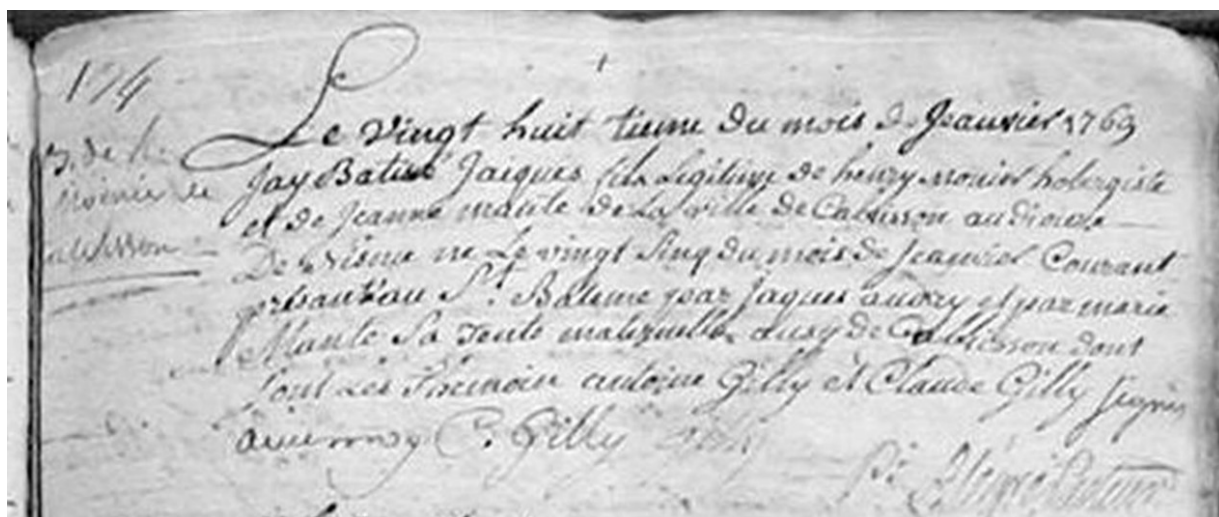 174
Le vingt huit tieme du mois de Jeanvier 1769
J. de h.
Jay Batisé Jaiques fils Legitime de henry monier hobergiste
monier de
et de Jeanne mante de La ville de Calvisson au diouse
calvisson
De Nisme ne Le vingt sinq du mois de Jeanvier Courant
présanté au St. Bateme par Jaques auvry et par marie
Mante Sa tente maternelle ausy de Calvisson dont
sont Les Themoin antoine Gilly et Claude Gilly signés
avec moy C. Gilly Gilly
Pasteur